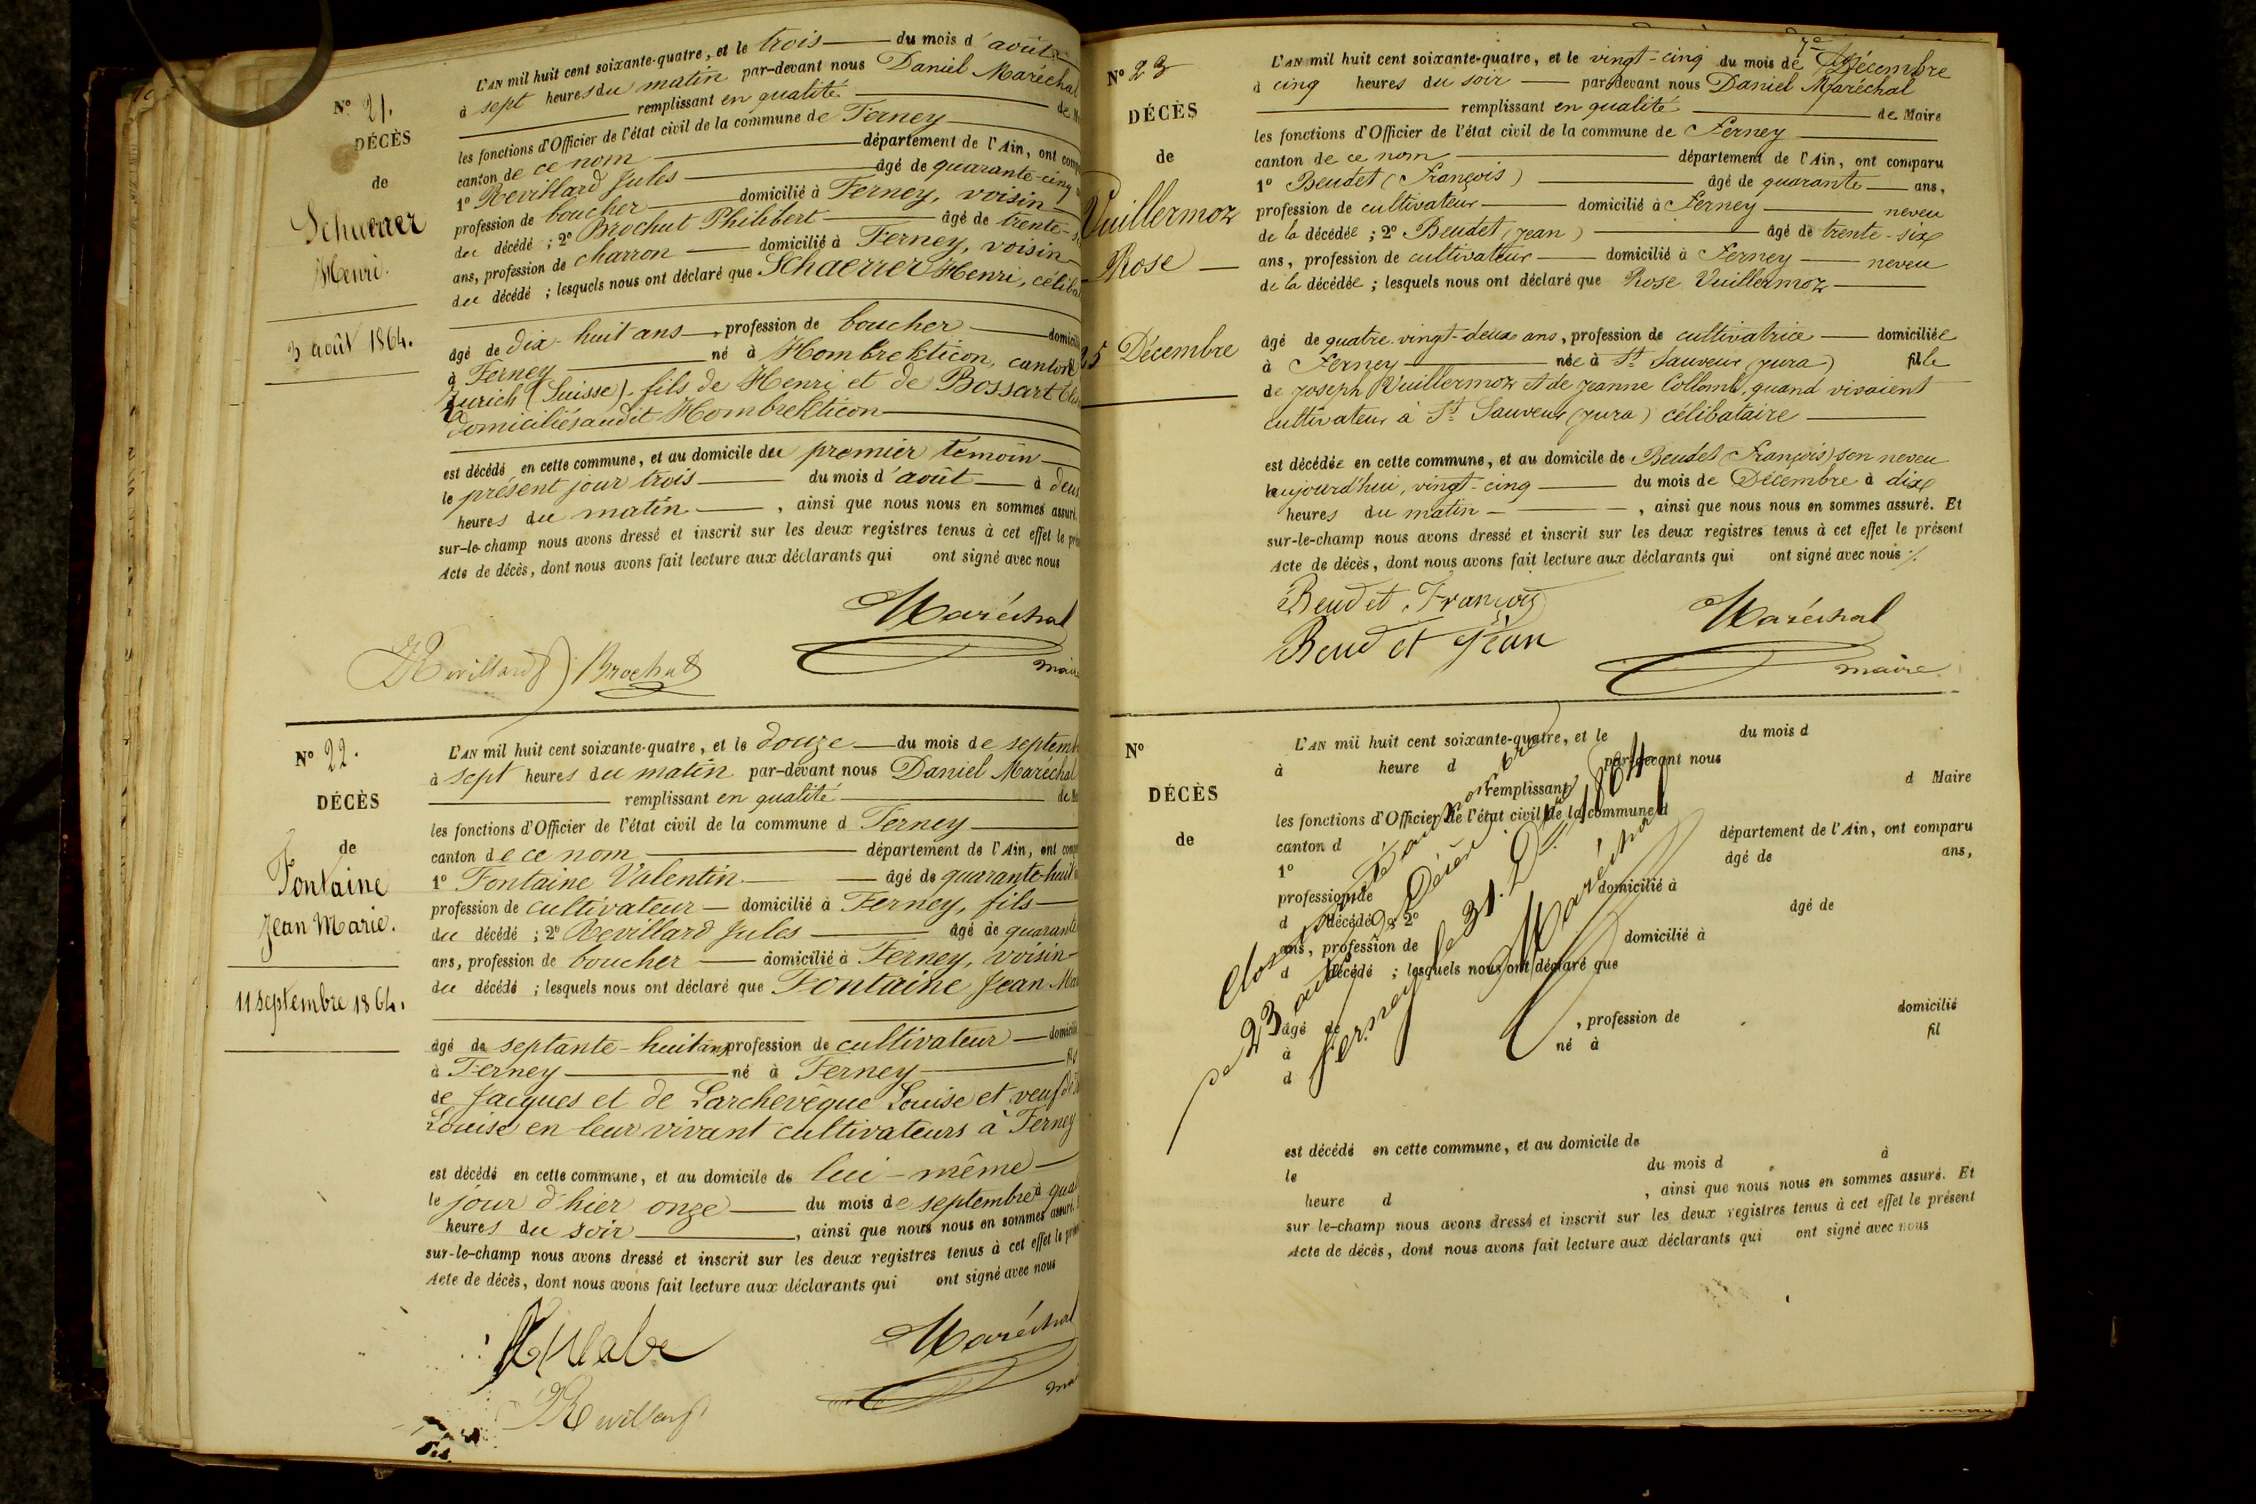 N° 21.
DÉCÈS
de
Schaerrer
Henri.
3 août 1864.
L'AN mil huit cent soixante-quatre, et le trois du mois d'août
à sept heures du matin par-devant nous Daniel Maréchal
remplissant en qualité de
les fonctions d'Officier de l'état civil de la commune de Ferney
canton de ce nom département de l'Ain, ont
1° Revillard Jules âgé de quarante-cinq
profession de boucher domicilié à Ferney, voisin
du décédé ; 2° Brochut Philibert âgé de trente-
ans, profession de charron domicilié à Ferney, voisin
du décédé ; lesquels nous ont déclaré que Schaerrer Henri,
âgé de dix-huit ans, profession de boucher
à Ferney né à Hombrekticon, canton
Zurich (Suisse), fils de Henri et de Bossart
domiciliés audit Hombrekticon
est décédé en cette commune, et au domicile du premier témoin
le présent jour trois du mois d'août à
heures du matin, ainsi que nous nous en sommes assuré.
sur-le-champ nous avons dressé et inscrit sur les deux registres tenus à cet effet le
Acte de décès, dont nous avons fait lecture aux déclarants qui ont signé avec nous
Maréchal
Revillard J Brochut
N° 22.
DÉCÈS
de
Fontaine
Jean Marie.
11 septembre 1864.
L'AN mil huit cent soixante-quatre, et le douze du mois de
à sept heures du matin par-devant nous Daniel Maréchal
remplissant en qualité de
les fonctions d'Officier de l'état civil de la commune d Ferney
canton de ce nom département de l'Ain, ont
1° Fontaine Valentin âgé de quarante-huit
profession de cultivateur domicilié à Ferney, fils
du décédé ; 2° Revillard Jules âgé de
ans, profession de boucher domicilié à Ferney, voisin
du décédé ; lesquels nous ont déclaré que Fontaine Jean
âgé de septante-huit ans profession de cultivateur
à Ferney né à Ferney fils
de Jacques et de Larchevêque Louise et veuf
Louise en leur vivant cultivateurs à Ferney
est décédé en cette commune, et au domicile de lui-même
le jour d'hier onze du mois de septembre à
heures du soir, ainsi que nous nous en sommes assuré.
sur-le-champ nous avons dressé et inscrit sur les deux registres tenus à cet effet le
Acte de décès, dont nous avons fait lecture aux déclarants qui ont signé avec nous
Maréchal
Revillard
N° 23
DÉCÈS
de
Vuillermoz
Rose
25 Décembre
L'AN mil huit cent soixante-quatre, et le vingt-cinq du mois de Décembre
à cinq heures du soir par devant nous Daniel Maréchal
remplissant en qualité de Maire
les fonctions d'Officier de l'état civil de la commune de Ferney
canton de ce nom département de l'Ain, ont comparu
1° Beudet (François) âgé de quarante ans,
profession de cultivateur domicilié à Ferney neveu
de la décédée ; 2° Beudet (Jean) âgé de trente-six
ans, profession de cultivateur domicilié à Ferney neveu
de la décédée ; lesquels nous ont déclaré que Rose Vuillermoz
âgé de quatre-vingt-deux ans, profession de cultivatrice domiciliée
à Ferney née à St Sauveur (Jura) fille
de Joseph Vuillermoz et de Jeanne Collomb, quand vivaient
cultivateur à St Sauveur (Jura) célibataire
est décédée en cette commune, et au domicile de Beudet (François) son neveu
aujourd'hui, vingt-cinq du mois de Décembre à dix
heures du matin, ainsi que nous nous en sommes assuré. Et
sur-le-champ nous avons dressé et inscrit sur les deux registres tenus à cet effet le présent
Acte de décès, dont nous avons fait lecture aux déclarants qui ont signé avec nous
Beudet François
Beudet Jean
Maréchal
maire
N°
DÉCÈS
de
L'AN mil huit cent soixante-quatre, et le du mois d
à heure d par-devant nous
remplissant d Maire
les fonctions d'Officier de l'état civil de la commune d
canton d département de l'Ain, ont comparu
1° âgé de ans,
profession de domicilié à
d décédé ; 2° âgé de
ans, profession de domicilié à
d décédé ; lesquels nous ont déclaré que
âgé de , profession de domicilié
à né à fil
d
est décédé en cette commune, et au domicile de
le du mois d à
heure d , ainsi que nous nous en sommes assuré. Et
sur le-champ nous avons dressé et inscrit sur les deux registres tenus à cet effet le présent
Acte de décès, dont nous avons fait lecture aux déclarants qui ont signé avec nous
Clos
de 23 actes
Ferney le 31 1864
Maréchal